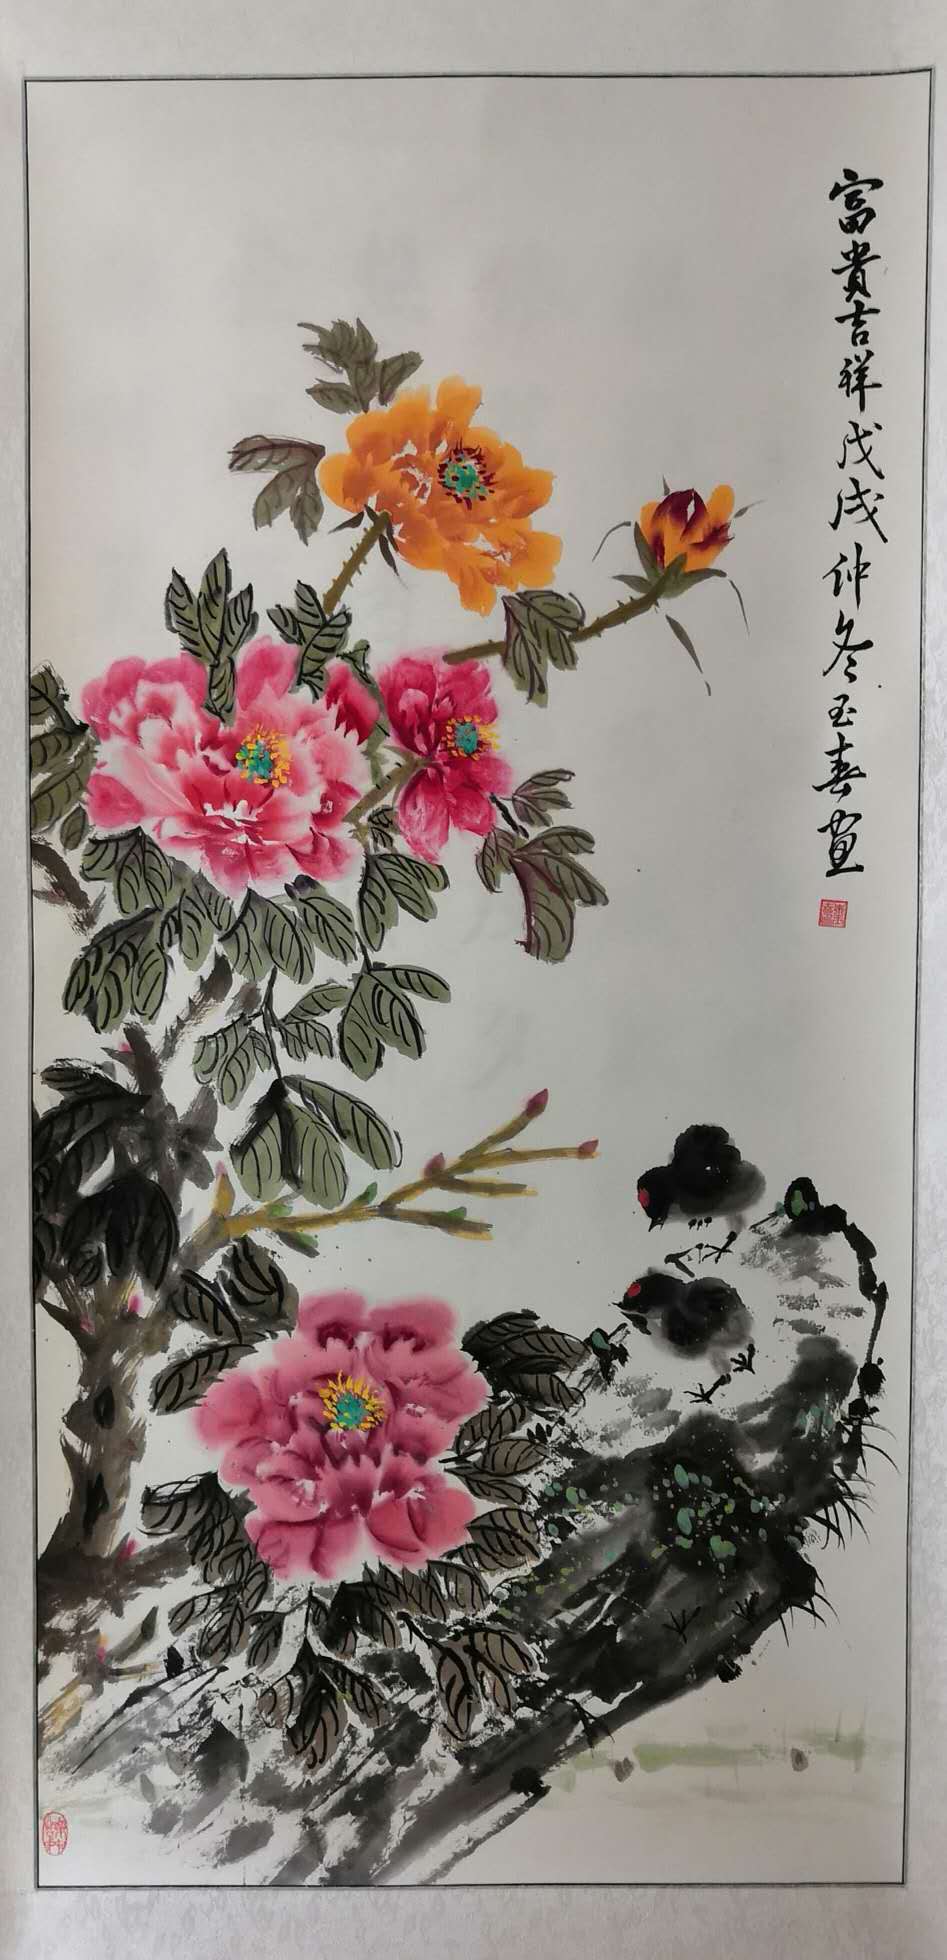 富貴吉祥戊戌仲冬玉春画